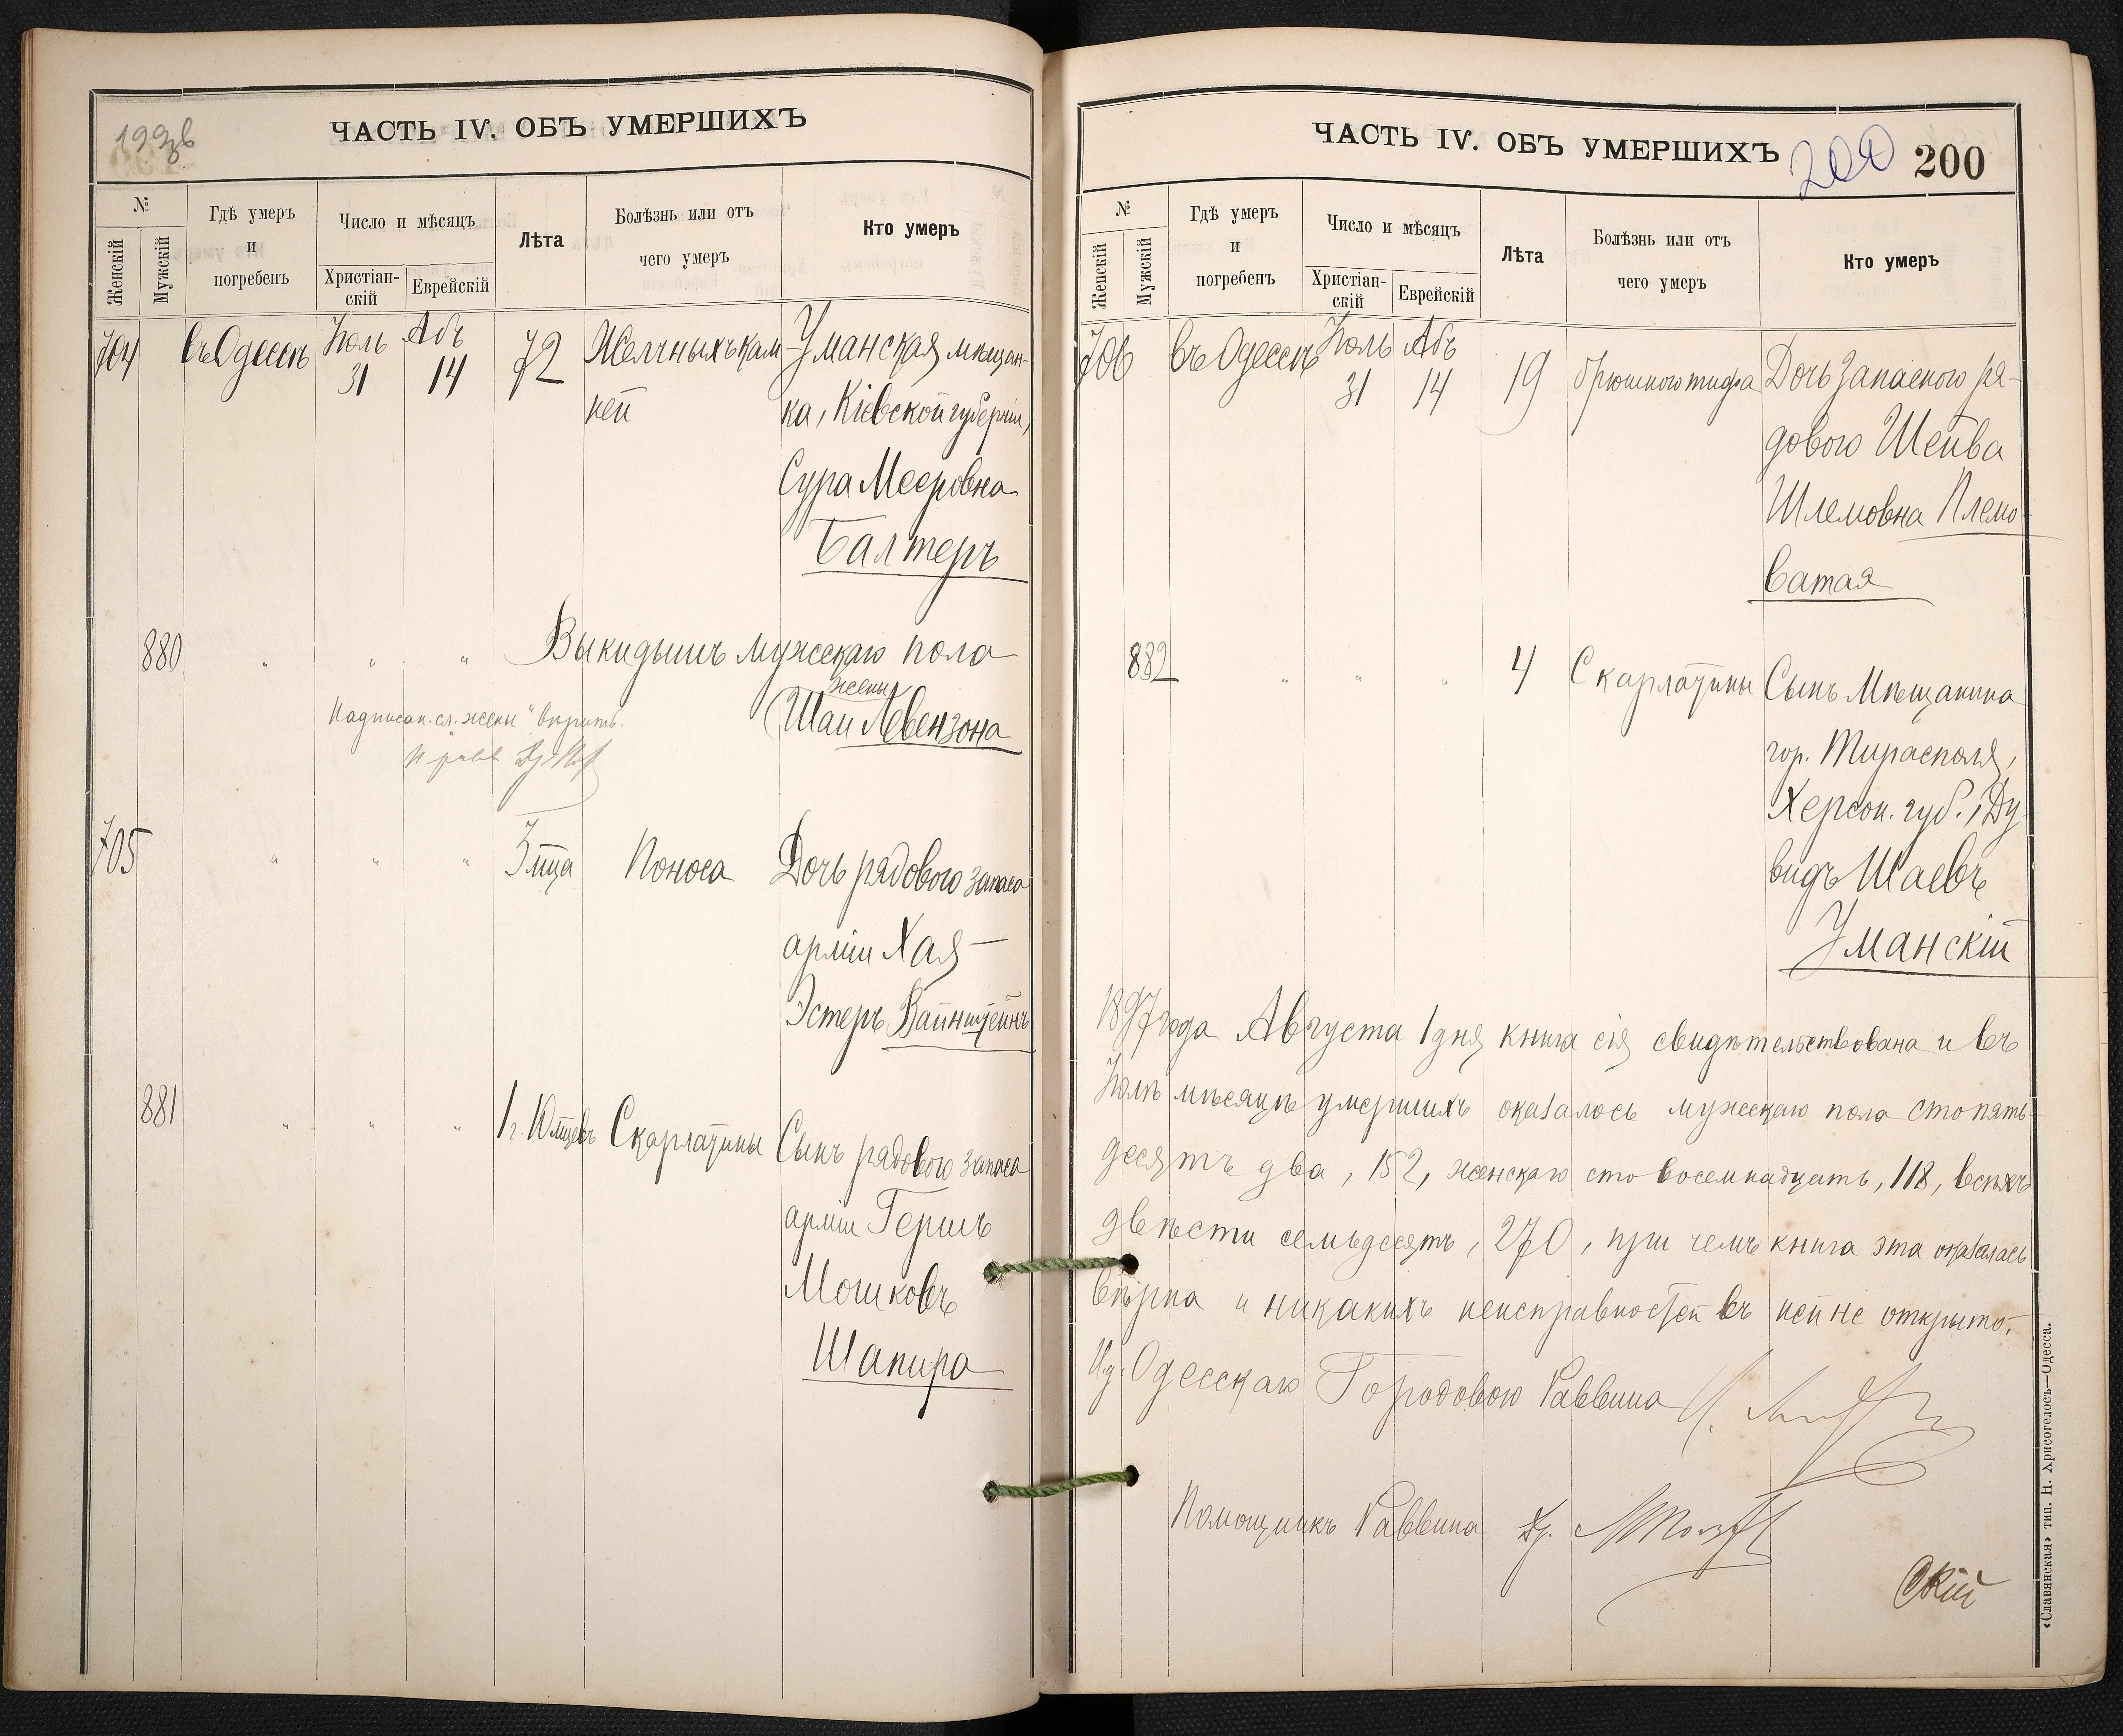 199 об
ЧАСТЬ IV. ОБЪ УМЕРШИХЪ
№
Женскій
Мужскій
Гдѣ умеръ
и
погребенъ
Число и мѣсяцъ
Христіан-
скій
Еврейскій
Лѣта
Болѣзнь или отъ
чего умеръ
Кто умеръ
704 въ Одессѣ Іюль 31 Абъ 14 72 Желчныхъ кам- Уманская мѣщан-
ней ка, Кіевской губерніи,
Сура Мееровна
Балтеръ
880 " " " Выкидышъ мужскаго пола
жены
Шаи Левензона
Надписан. сл. "жены" вѣрить.
705 " " " 3 м‑ца Поноса Дочь рядового запаса
арміи Хая-
Эстеръ Вайнштейнъ
881 " " " 1 г. 10 м‑цевъ Скарлатины Сынъ рядового запаса
арміи Гершъ
Мошковъ
Шапира
ЧАСТЬ IV. ОБЪ УМЕРШИХЪ
200
200
№
Женскій
Мужскій
Гдѣ умеръ
и
погребенъ
Число и мѣсяцъ
Христіан-
скій
Еврейскій
Лѣта
Болѣзнь или отъ
чего умеръ
Кто умеръ
706 въ Одессѣ Іюль 31 Абъ 14 19 брюшного тифа Дочь запасного ря-
дового Шейва
Шлемовна Племо-
ватая
882 " " " 4 Скарлатины Сынъ Мѣщанина
гор. Тирасполя,
Херсон. губ., Ду-
видъ Шаевъ
Уманскій
1897 года Августа 1 дня книга сія свидѣтельствована и въ
Іюлѣ мѣсяцѣ умершихъ оказалось мужскаго пола сто пять-
десятъ два, 152, женскаго сто восемнадцать, 118, всѣхъ
двѣсти семьдесятъ, 270, при чемъ книга эта оказалась
вѣрна и никакихъ неисправностей въ ней не открыто.
И.д. Одесскаго Городового Раввина
Помощникъ Раввина Др.
скій
«Славянская» тип. Н. Хрисогелосъ—Одесса.